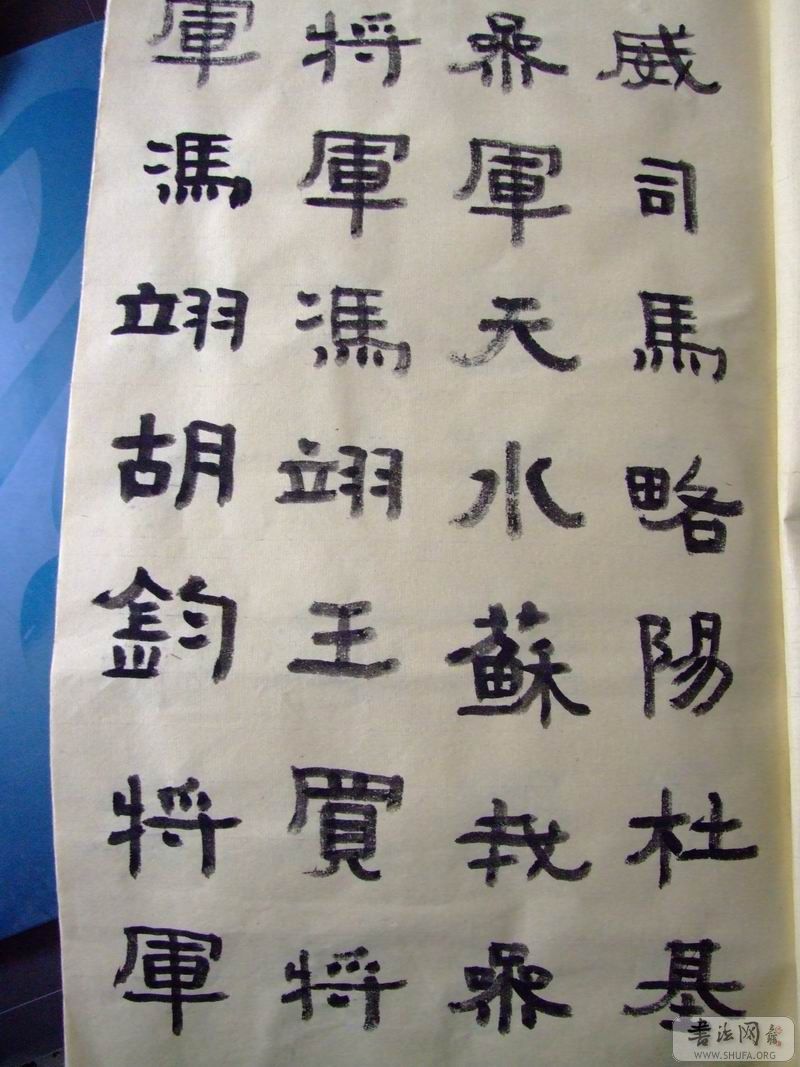 威司馬略陽杜基
參軍天水蘇參
将軍馮翊王買将
軍馮翊胡鈞将軍
書法网
WWW.SHUFA.ORG